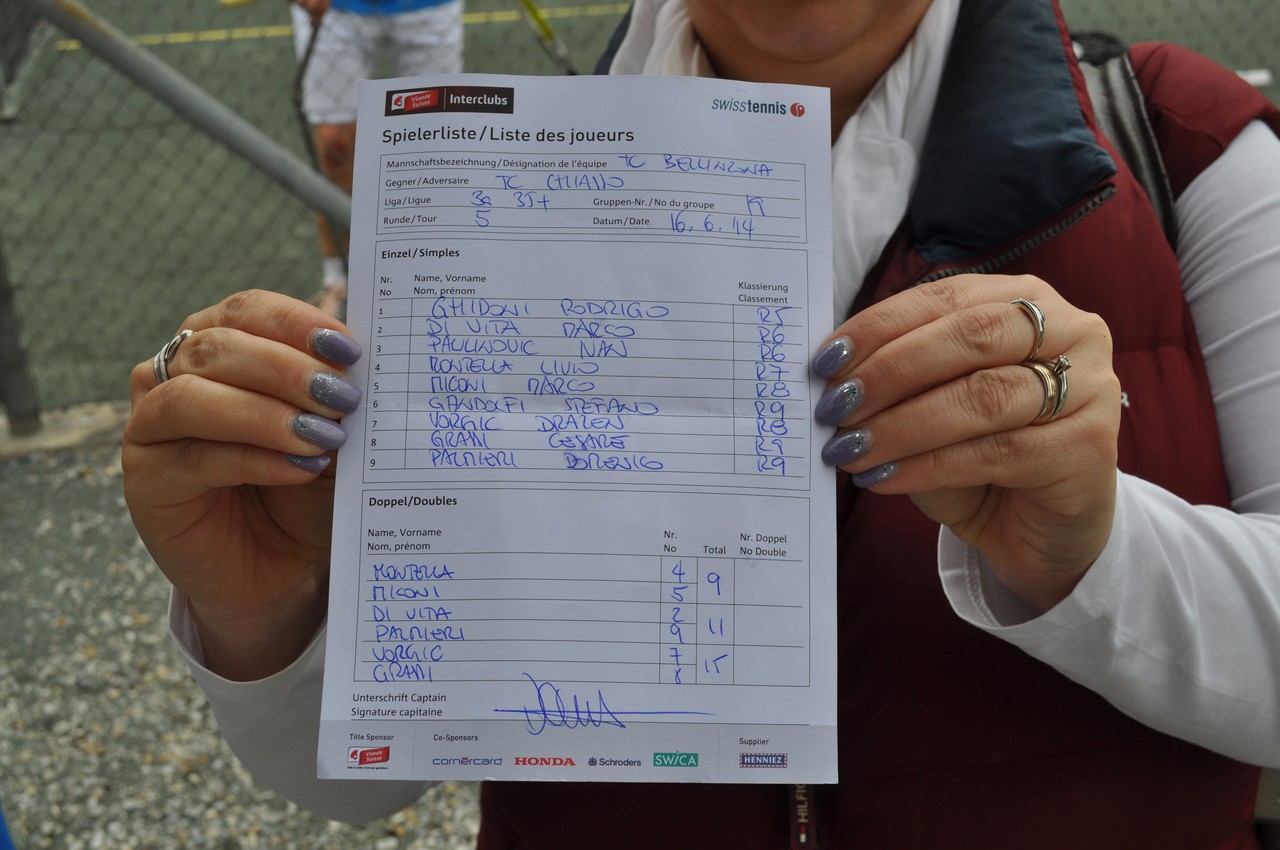 Viande Suisse Interclubs
swisstennis
Spielerliste/Liste des joueurs
Mannschaftsbezeichnung/Désignation de l'équipe TC BELLINZONA
Gegner/Adversaire TC CHIASSO
Liga/Ligue 3a 35+ Gruppen-Nr./No du groupe 19
Runde/Tour 5 Datum/Date 16.6.'14
Einzel/Simples
Nr. Name, Vorname Klassierung
No Nom, prénom Classement
1 GHIDONI RODRIGO R5
2 DI VITA MARCO R6
3 PAULINOVIC IVAN R6
4 MONTELLA LIVIO R7
5 MICONI MARCO R8
6 GANDOLFI STEFANO R9
7 VORGIC DRAZEN R8
8 GRASSI CESARE R9
9 PALMIERI DOMENICO R9
Doppel/Doubles
Name, Vorname Nr. Nr. Doppel
Nom, prénom No Total No Double
MONTELLA 4 9
MICONI 5
DI VITA 2 11
PALMIERI 9
VORGIC 7 15
GRASSI 8
Unterschrift Captain
Signature capitaine
Title Sponsor Co-Sponsors Supplier
Viande Suisse cornèrcard HONDA Schroders SWICA HENNIEZ
HILFIG